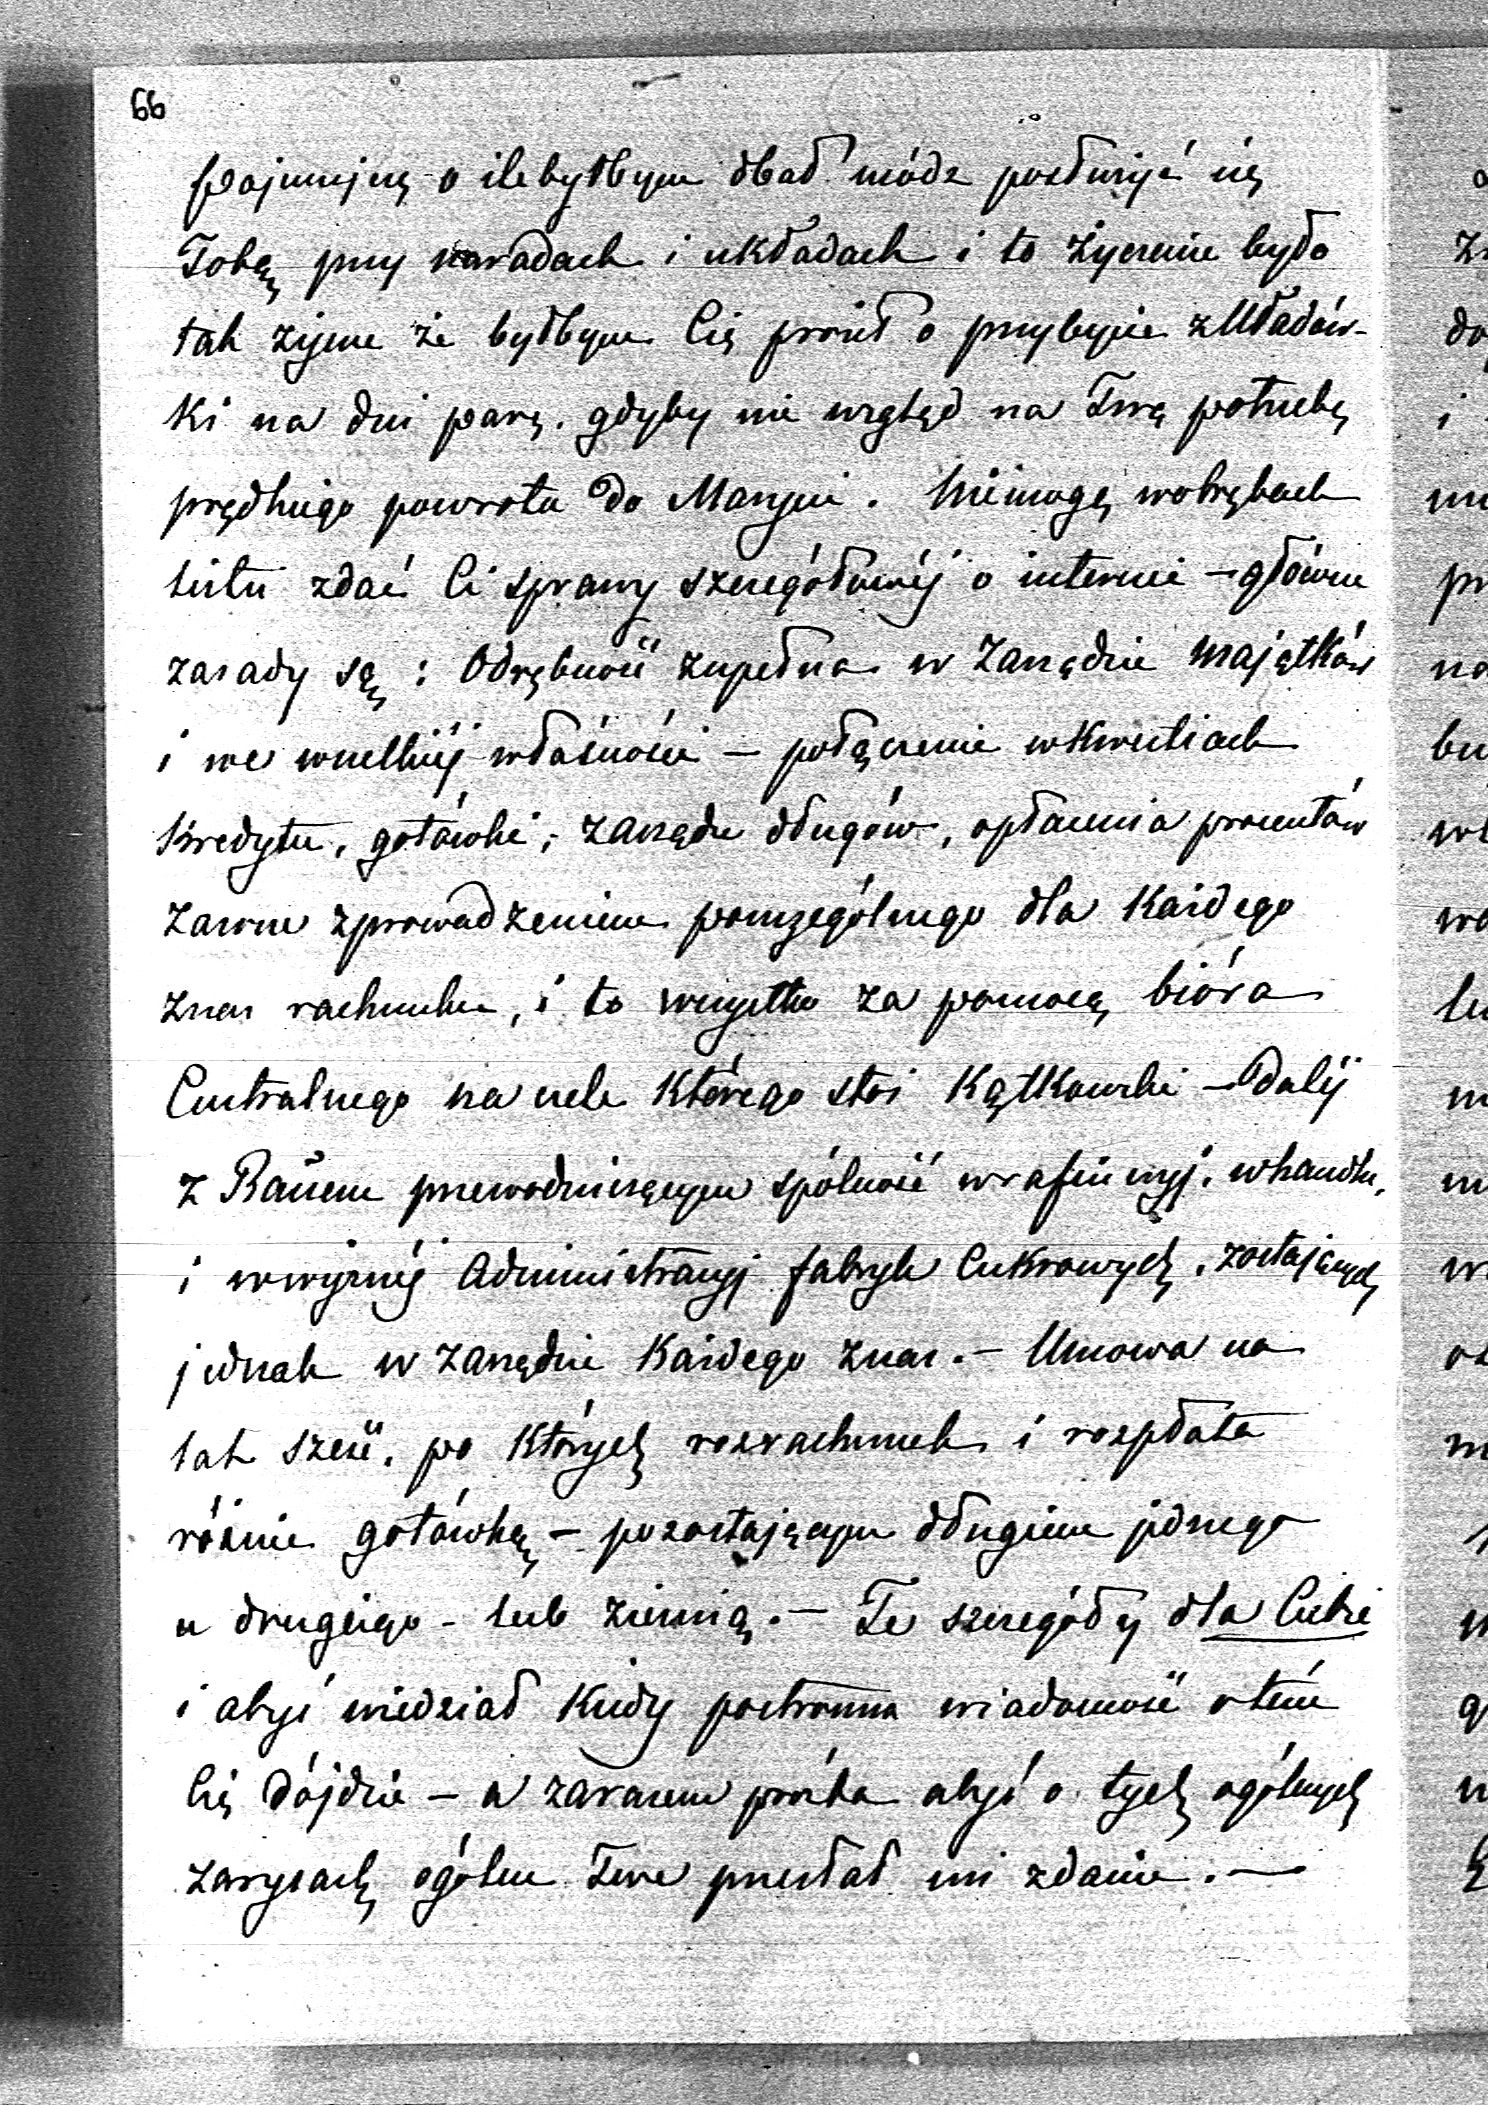 66
Pojmujesz o ilebytbym dbał módz posłużyć się
Tobą przy naradach i układach i to życzenie było
tak żywe że byłbym Cię prosił o przybycie z Uładów-
ki na dni parę, gdyby nie wzgląd na Twą potrzebę
prędkiego powrotu do Maryni. Niemogę wobrębach
listu zdać Ci sprawy szczegółowéj o interesie – główne
zasady są: Odrębność zupełna w Zarządzie majątków
i we wszelkiéj własności – połączenie w kwestiach
Kredytu, gotówki, zarządu długów, opłacenia procentów
Zawsze z prowadzeniem poszczególnego dla Każdego
z nas rachunku, i to wszystko za pomocą bióra
Centralnego na czele którego stoi Kątkowski – Daléj
z Bauem przewodniczącym spólność w rafineryj, w handlu,
i wwyższéj Administracyj fabryk Cukrowych, zostających
jednak w zarządzie Każdego z nas. – Umowa na
lat sześć, po których rozrachunek i rozpłata
różnic gotówką – pozostającym długiem jednego
u drugiego – lub ziemią. – Te szczegóły dla Ciebie
i abyś wiedział kiedy postronna wiadomość o tém
Cię dójdzie – a zarazem prośba abyś o tych ogólnych
zarysach ogólne Twe przesłał mi zdanie. –